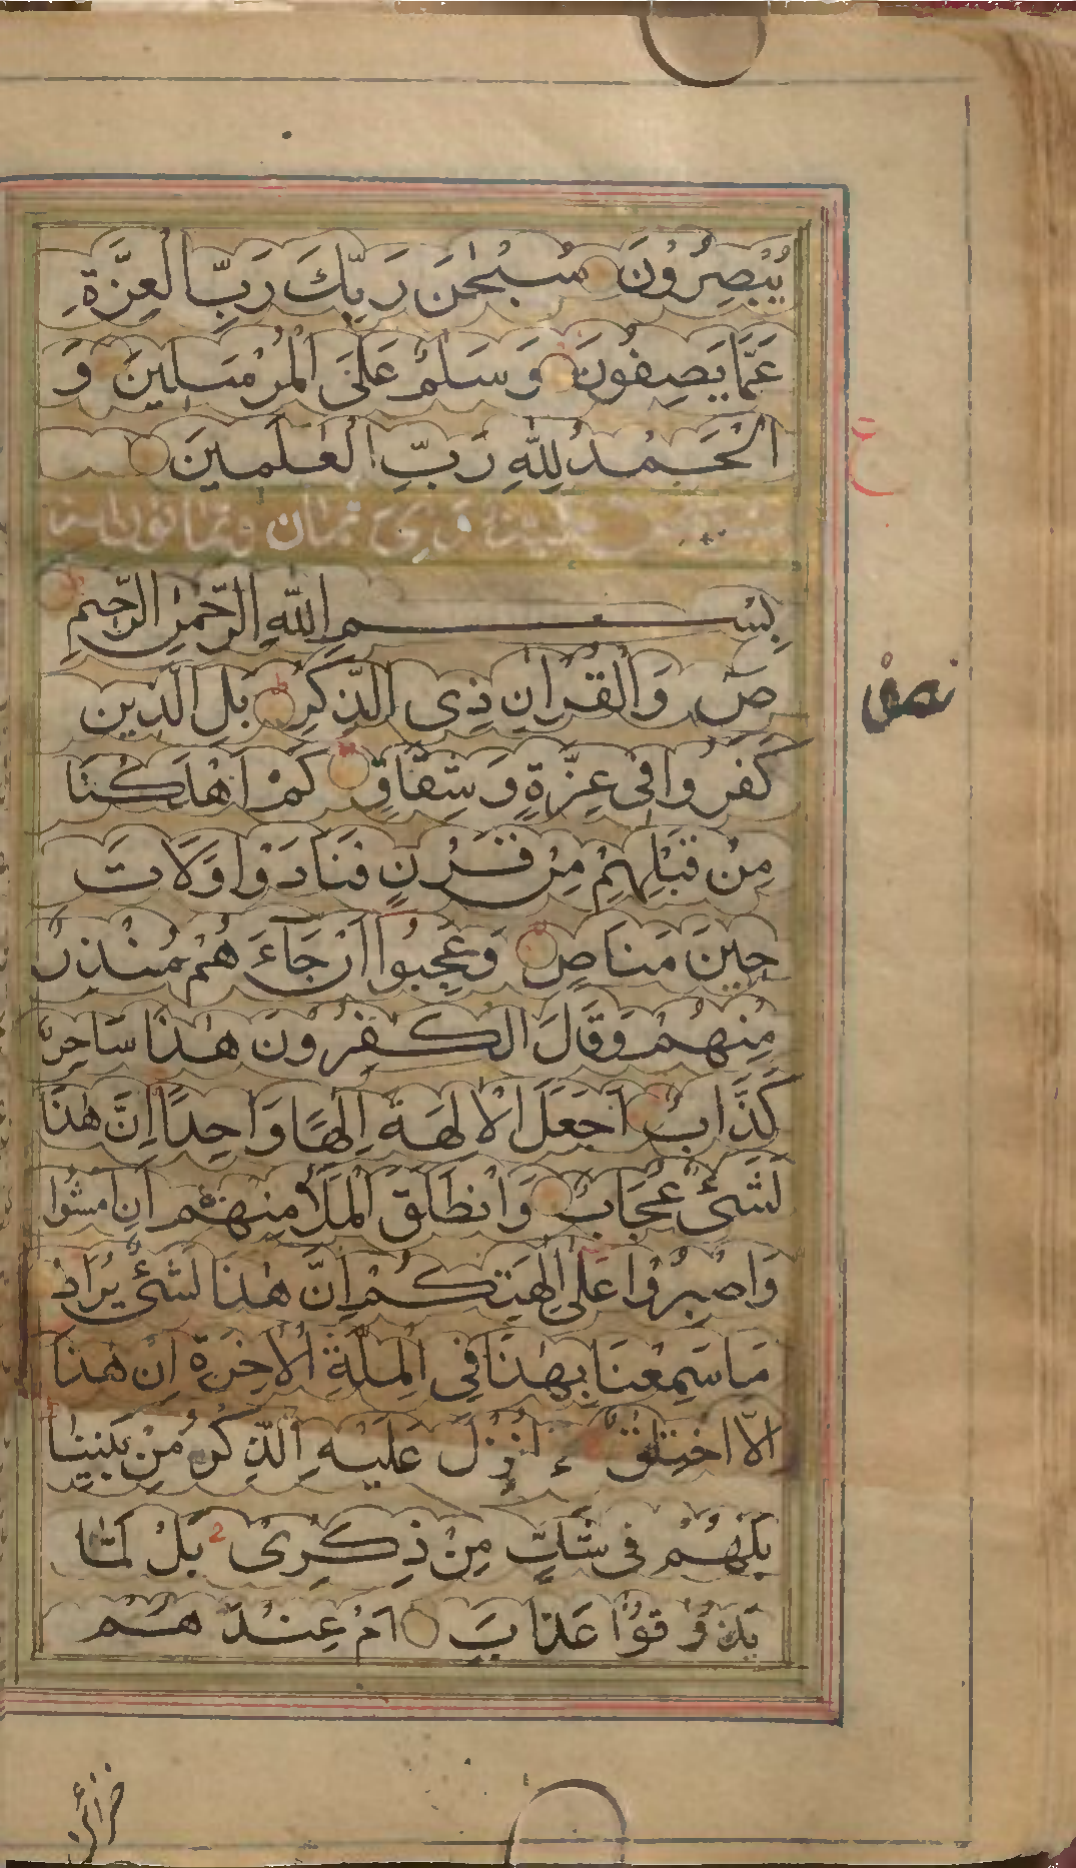 يُبْصِرُونَ سُبْحٰنَ رَبِّكَ رَبِّ الْعِزَّةِ
عَمَّا يَصِفُونَ وَسَلٰمٌ عَلَى الْمُرْسَلِينَ وَ
الْحَمْدُ لِلّٰهِ رَبِّ الْعٰلَمِينَ
ع
ثمان وثمانون
بِسْمِ اللّٰهِ الرَّحْمٰنِ الرَّحِيمِ
صٓ وَالْقُرْاٰنِ ذِى الذِّكْرِ بَلِ الَّذِينَ
نصف
كَفَرُوا فِى عِزَّةٍ وَشِقَاقٍ كَمْ اَهْلَكْنَا
مِنْ قَبْلِهِمْ مِنْ قَرْنٍ فَنَادَوْا وَلَاتَ
حِينَ مَنَاصٍ وَعَجِبُوا اَنْ جَآءَهُمْ مُنْذِرٌ
مِنْهُمْ وَقَالَ الْكٰفِرُونَ هٰذَا سَاحِرٌ
كَذَّابٌ اَجَعَلَ الْاٰلِهَةَ اِلٰهًا وَاحِدًا اِنَّ هٰذَا
لَشَىْءٌ عُجَابٌ وَانْطَلَقَ الْمَلَاُ مِنْهُمْ اَنِ امْشُوا
وَاصْبِرُوا عَلٰى اٰلِهَتِكُمْ اِنَّ هٰذَا لَشَىْءٌ يُرَادُ
مَا سَمِعْنَا بِهٰذَا فِى الْمِلَّةِ الْاٰخِرَةِ اِنْ هٰذَا
اِلَّا اخْتِلٰقٌ ءَاُنْزِلَ عَلَيْهِ الذِّكْرُ مِنْ بَيْنِنَا
بَلْ هُمْ فِى شَكٍّ مِنْ ذِكْرِى بَلْ لَمَّا
يَذُوقُوا عَذَابِ اَمْ عِنْدَ هُمْ
خزائن